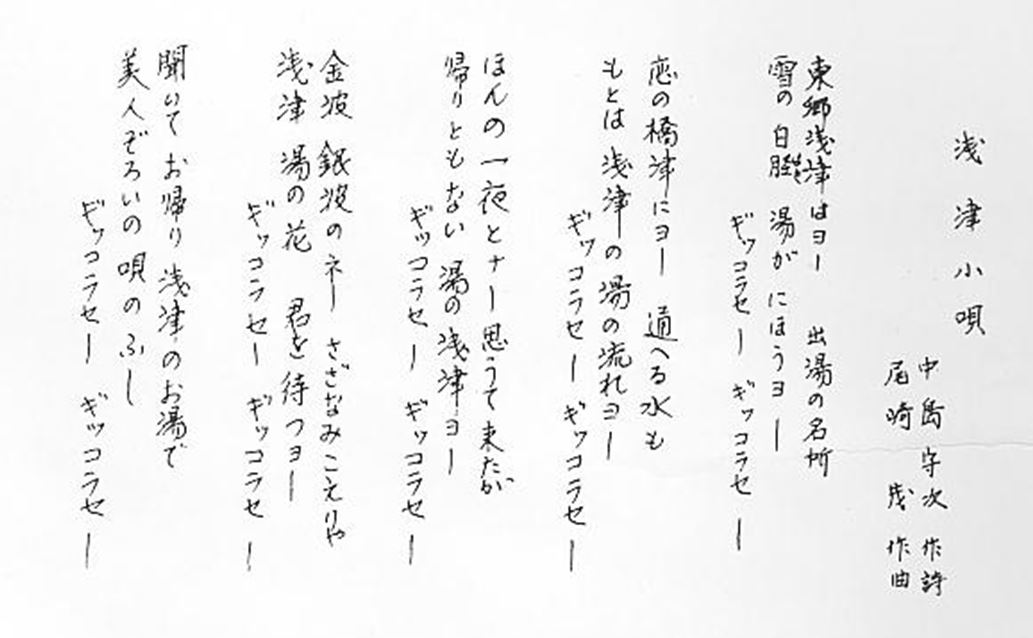 浅津小唄
中島守次 作詩
尾崎 茂 作曲
東郷浅津はヨー 出湯の名所
雪の白脛 湯がにほうヨー
ギッコラセー ギッコラセー
恋の橋津にヨー 通へる水も
もとは浅津の湯の流れヨー
ギッコラセー ギッコラセー
ほんの一夜とナー 思うて来たが
帰りともない 湯の浅津ヨー
ギッコラセー ギッコラセー
金波 銀波のネー さざなみこえりや
浅津 湯の花 君を待つヨー
ギッコラセー ギッコラセー
聞いてお帰り 浅津のお湯で
美人ぞろいの唄のふし
ギッコラセー ギッコラセー